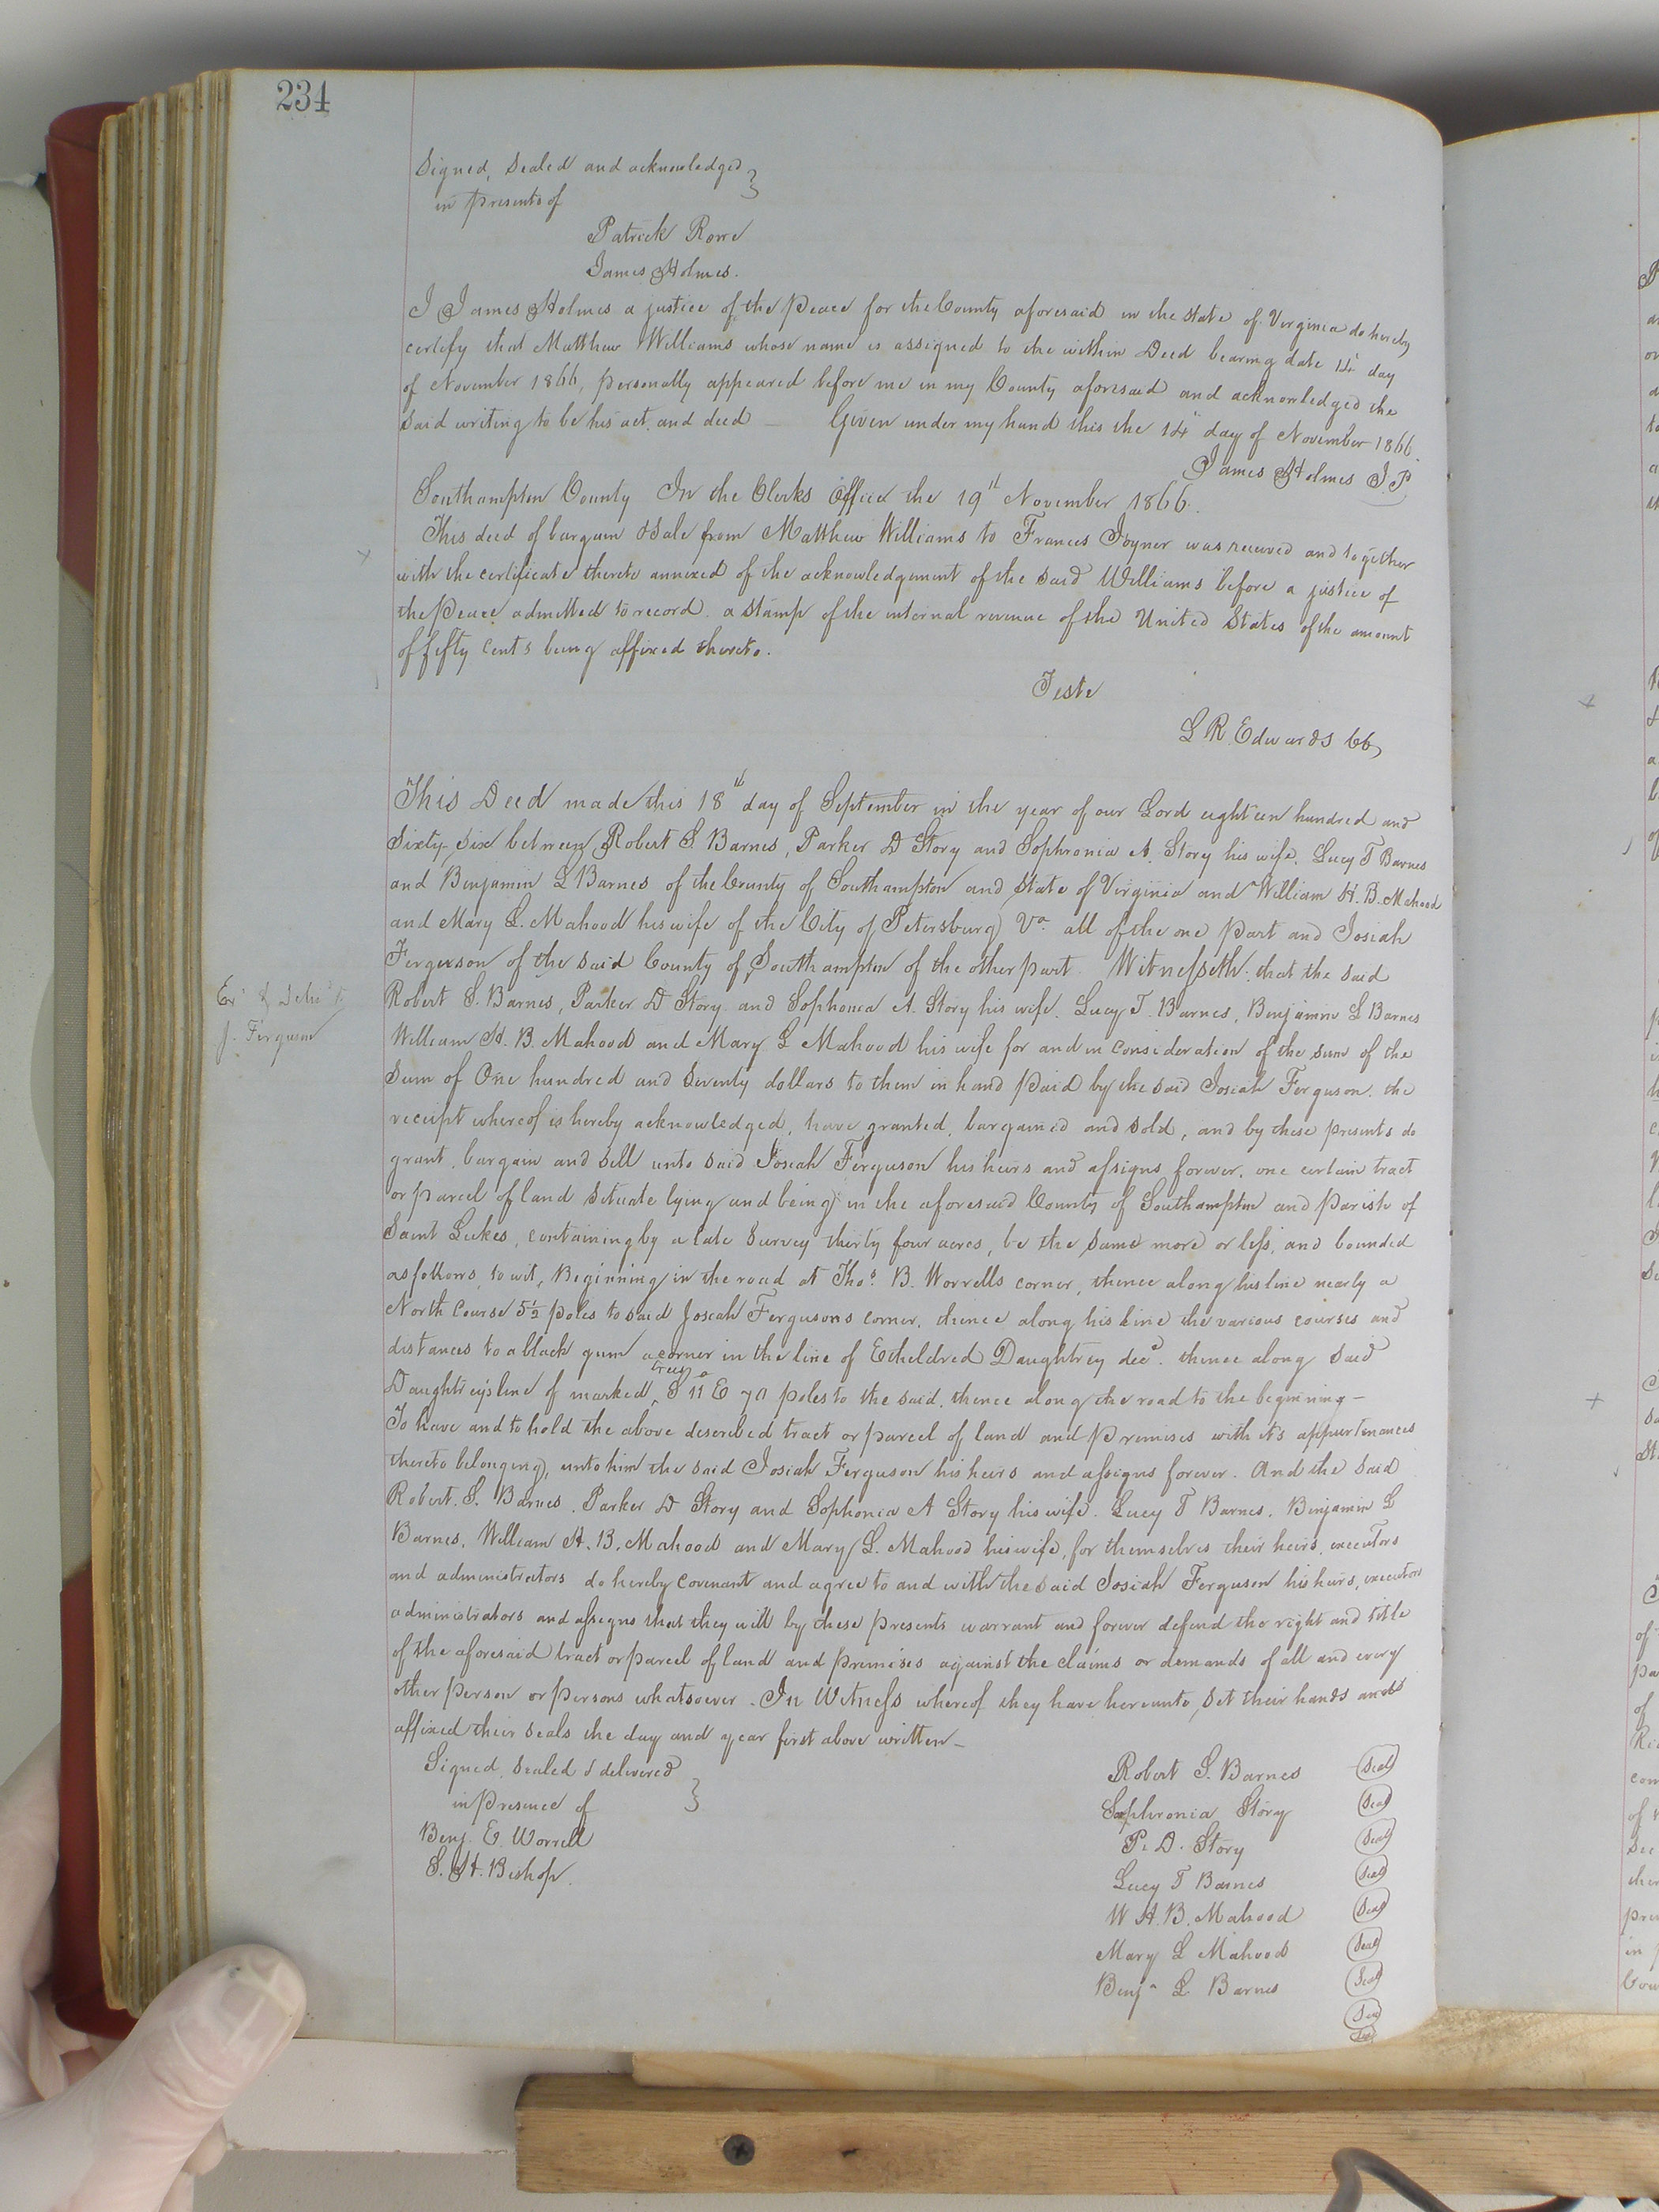 234
Signed, Sealed and acknowledged
in presents of
Patrick Rowe
James Holmes.
I James Holmes a justice of the Peace for the County aforesaid in the State of Virginia do hereby
certify that Matthew Williams whose name is assigned to the within Deed bearing date 14 day
of November 1866, personally appeared before me in my County aforesaid and acknowledged the
said writing to be his act and deed — Given under my hand this the 14 day of November 1866.
James Holmes J.P
Southampton County In the Clerks Office the 19th November 1866.
This deed of bargain & Sale from Matthew Williams to Frances Joyner was received and together
with the certificate thereto annexed of the acknowledgement of the said Williams before a justice of
the Peace admitted to record. a Stamp of the internal revenue of the United States of the amount
of fifty cents being affixed thereto.
Teste
L R Edwards CC
This Deed made this 18th day of September in the year of our Lord eighteen hundred and
Sixty-Six between Robert S. Barnes, Parker D Story and Sophronia A. Story his wife, Lucy T Barnes
and Benjamin L Barnes of the County of Southampton and State of Virginia and William H. B. Mahood
and Mary L. Mahood his wife of the City of Petersburg Va. all of the one part and Josiah
Ferguson of the said County of Southampton of the other part Witnesseth: that the said
Ex
J. Ferguson
Robert S. Barnes, Parker D Story and Sophonia A. Story his wife. Lucy T. Barnes, Benjamin L Barnes
William H. B. Mahood and Mary L Mahood his wife for and in consideration of the sum of the
Sum of One hundred and Seventy dollars to them in hand paid by the said Josiah Ferguson. the
receipt whereof is hereby acknowledged, have granted, bargained and sold, and by these presents do
grant, bargain and sell unto said Josiah Ferguson his heirs and assigns forever, one certain tract
or parcel of land situate lying and being in the aforesaid County of Southampton and Parish of
Saint Lukes, containing by a late Survey thirty four acres, be the same more or less, and bounded
as follows, to wit, Beginning in the road at Thos. B. Worrells corner, thence along his line nearly a
North Course 5½ poles to said Josiah Fergusons corner, thence along his line the various courses and
distances to a black gum a corner in the line of Etheldred Daughtrey decd. thence along said
Daughtreys line of marked trees S 11° E 70 poles to the said, thence along the road to the beginning —
To have and to hold the above described tract or parcel of land and premises with its appurtenances
thereto belonging, unto him the said Josiah Ferguson his heirs and assigns forever. And the said
Robert. S. Barnes. Parker D Story and Sophonia A Story his wife. Lucy T Barnes. Benjamin L
Barnes, William H. B. Mahood and Mary L. Mahood his wife, for themselves their heirs, executors
and administrators do hereby covenant and agree to and with the said Josiah Ferguson his heirs, executors
administrators and assigns that they will by these presents warrant and forever defend the right and title
of the aforesaid tract or parcel of land and premises against the claims or demands of all and every
other person or persons whatsoever. In Witness whereof they have hereunto set their hands and
affixed their seals the day and year first above written —
Signed, Sealed & delivered
in presence of
Benj. E. Worrell
S. H. Bishop.
Robert S. Barnes Seal
Sophronia Story Seal
P. D. Story Seal
Lucy T Barnes Seal
W H. B. Mahood Seal
Mary L Mahood Seal
Benjn L. Barnes Seal
Seal
Seal